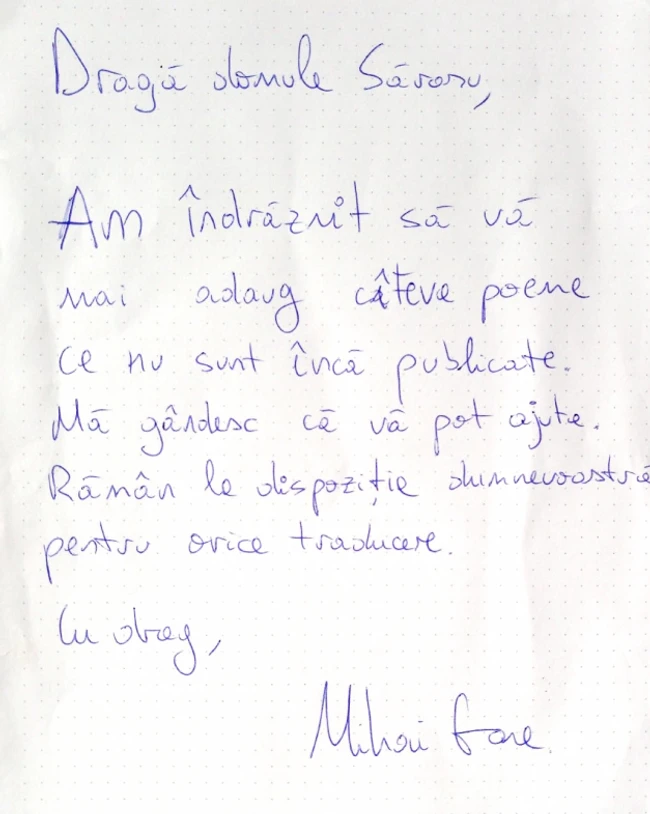 Dragă domnule Săvosu,
Am îndrăznit să vă
mai adaug câteva poeme
ce nu sunt încă publicate.
Mă gândesc că vă pot ajuta.
Rămân la dispoziție dumnevoastră
pentru orice traducere.
Cu drag,
Mihai